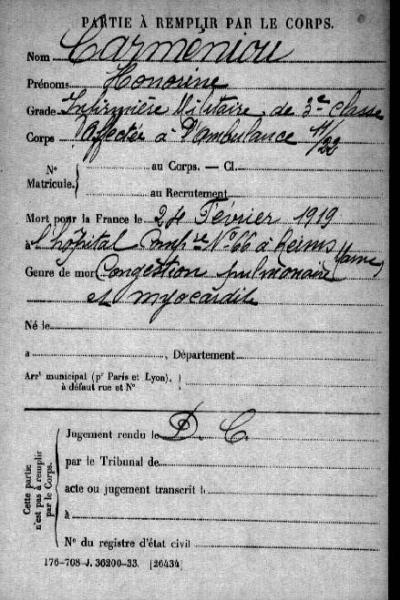 PARTIE À REMPLIR PAR LE CORPS.
Nom Carméniou
Prénoms Honorine
Grade Infirmière Militaire de 3e classe
Corps Affectée à l'ambulance 11/22
N° Matricule. { au Corps. — Cl.
au Recrutement
Mort pour la France le 24 Février 1919
à l'hôpital N° 66 à Reims (Marne)
Genre de mort Congestion pulmonaire
et myocardite
Né le
à , Département
Arrt municipal (pr Paris et Lyon), à défaut rue et N° }
Cette partie n'est pas à remplir par le Corps.
Jugement rendu le D. C.
par le Tribunal de
acte ou jugement transcrit le
à
N° du registre d'état civil
176-708-J. 36200-33. [26434]